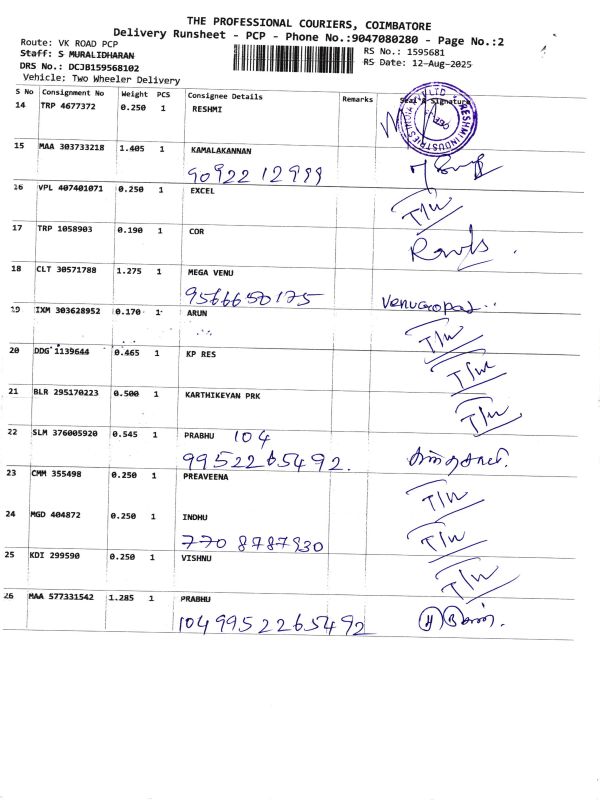 THE PROFESSIONAL COURIERS, COIMBATORE
Delivery Runsheet - PCP - Phone No.:9047080280 - Page No.:2
Route: VK ROAD PCP
Staff: S MURALIDHARAN
DRS No.: DCJB159568102
Vehicle: Two Wheeler Delivery
RS No.: 1595681
RS Date: 12-Aug-2025
S No Consignment No Weight PCS Consignee Details Remarks Seal & Signature
14 TRP 4677372 0.250 1 RESHMI
RESHMI INDUSTRIES INDIA
15 MAA 303733218 1.405 1 KAMALAKANNAN
90922 12999
16 VPL 407401071 0.250 1 EXCEL T/W
17 TRP 1058903 0.190 1 COR
18 CLT 30571788 1.275 1 MEGA VENU
9566650175 Venugopal
19 IXM 303628952 0.170 1 ARUN T/W
20 DDG 1139644 0.465 1 KP RES T/W
21 BLR 295170223 0.500 1 KARTHIKEYAN PRK T/W
22 SLM 376005920 0.545 1 PRABHU 104
9952265492.
23 CMM 355498 0.250 1 PREAVEENA T/W
24 MGD 404872 0.250 1 INDHU T/W
770 8787930
25 KDI 299590 0.250 1 VISHNU T/W
26 MAA 577331542 1.285 1 PRABHU
104 9952265492